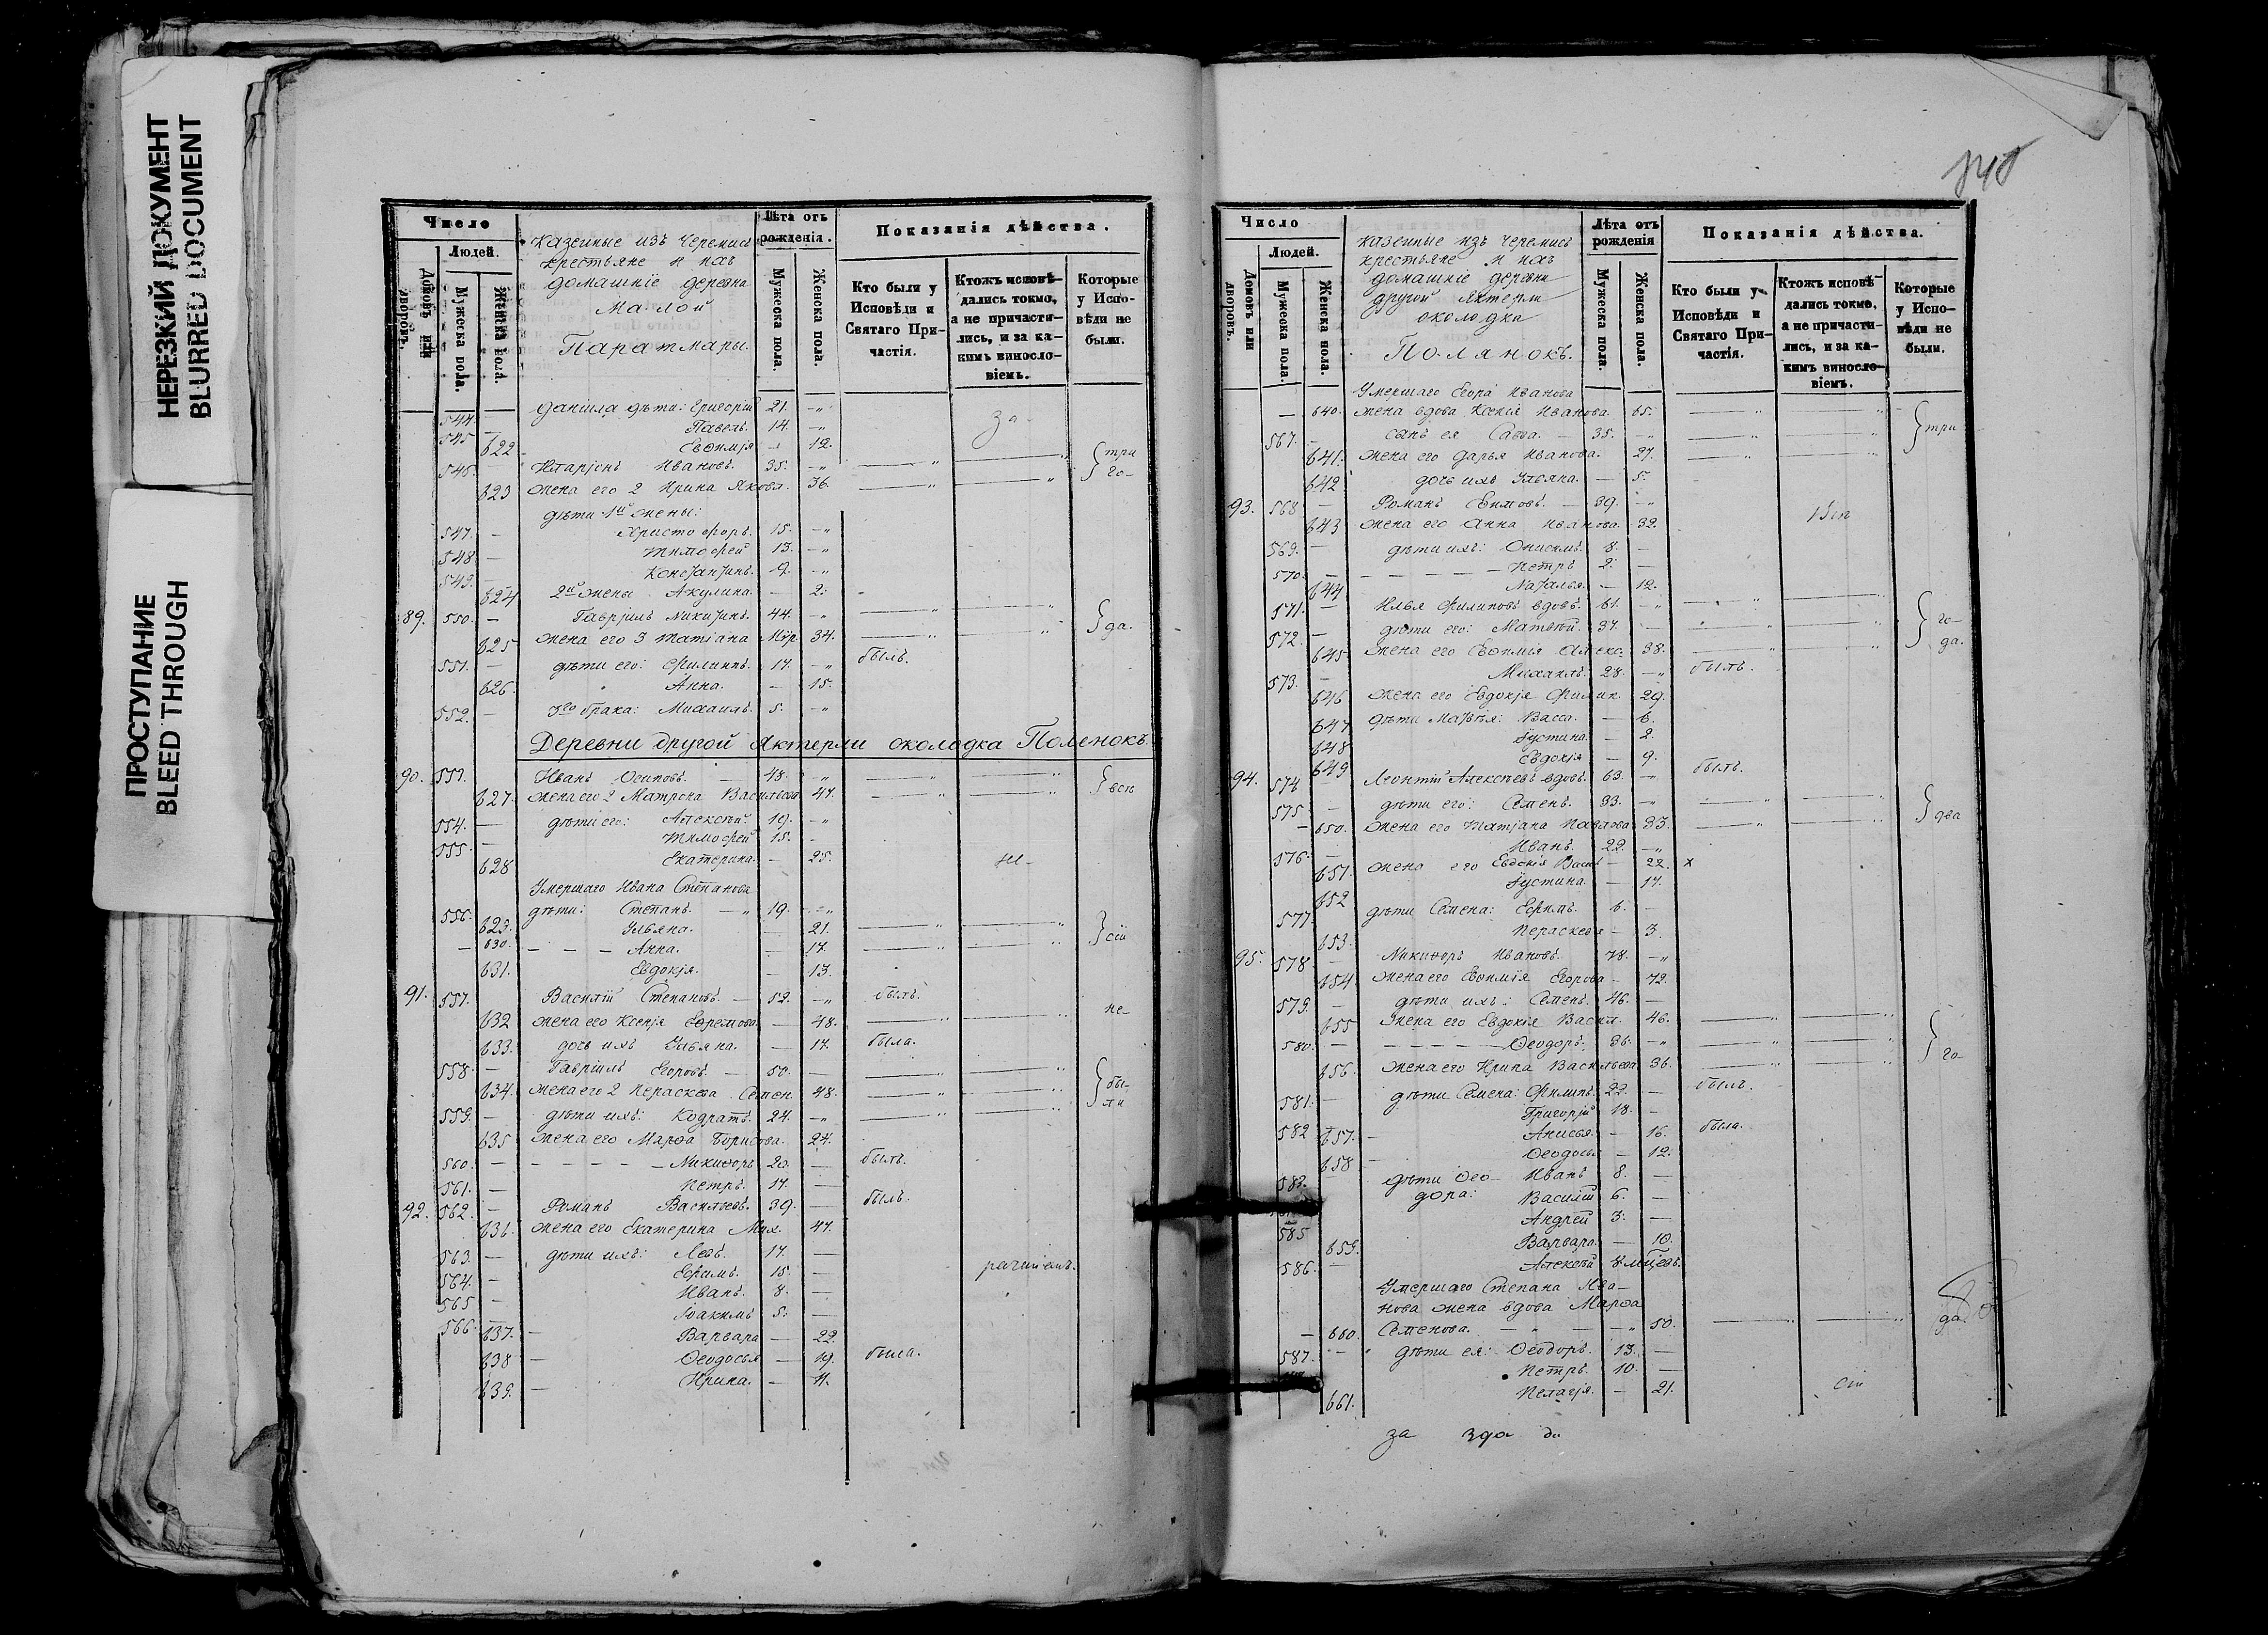 НЕРЕЗКИЙ ДОКУМЕНТ
BLURRED DOCUMENT
ПРОСТУПАНИЕ
BLEED THROUGH
Число
Людей.
Домовъ или дворовъ.
Мужеска пола.
Женска пола.
Казенные изъ Черемисъ
крестьяне и ихъ
домашніе деревни
Малой
Паратмары.
Лѣта отъ рожденія.
Мужеска пола.
Женска пола.
Показанія дѣйства.
Кто были у Исповѣди и Святаго Причастія.
Ктожъ исповѣдались токмо, а не причастились, и за какимъ винословіемъ.
Которые у Исповѣди не были.
544. Даніила дѣти: Григорій 21. за
545 – Павелъ. 14.
622 Евфимія – 12.
546. Иларіонъ Ивановъ. 35. три
623 жена его 2 Ирина Яковл. 36. го-
дѣти 1й жены:
547. – Христофоръ. 15.
548 – Тимофей 13.
549. – Константинъ. 9.
624 2й жены Акулина. – 2.
89. 550. – Гавріилъ Никитинъ. 44. да.
625 жена его 3 Татіана 34.
551. – дѣти его: Филиппъ. 17. былъ.
626. Анна. – 15.
552. – 3го брака: Михаилъ. 5.
Деревни другой Яктерли околодка Поленокъ.
90. 553. Иванъ Осиповъ. – 48. всѣ
627. жена его 2 Матрона Васильева 47.
554. – дѣти его: Алексѣй 19.
555. – Тимофей 15.
628 Екатерина. – 25.
Умершаго Ивана Степанова
556. дѣти: Степанъ. 19.
629. Ульяна. – 21. сіи
– 630. – – – Анна. – 17.
631. Евдокія. – 13.
91. 557. Василій Степановъ. – 52. былъ.
632 жена его Ксенія Ефремова – 48. не-
633. дочь ихъ Ульяна. – 17. была.
558. – Гавріилъ Егоровъ. – 50.
634. жена его 2 Пераскева Семен. 48. бы-
559. – дѣти ихъ: Кодратъ. 24. ли
635 жена его Марфа Борисова. 24.
560. – – – – – Никифоръ 20. – былъ.
561. – Петръ. 17. –
92. 562. – Романъ Васильевъ. 39. – былъ.
636. жена его Екатерина Мих. 41.
563. – дѣти ихъ: Левъ. 17. –
564. – Ефимъ. 15. –
565 – Иванъ. 8. –
566. – Іоакимъ 5. –
637. – Варвара – 22.
638 – Феодосья – 19. была.
639. – Ирина. – 11.
Число
Людей.
Домовъ или дворовъ.
Мужеска пола.
Женска пола.
Казенные изъ Черемисъ
крестьяне и ихъ
домашніе деревни
другой Яктерли
околодка
Полянокъ.
Лѣта отъ рожденія
Мужеска пола.
Женска пола.
Показанія дѣйства.
Кто были у Исповѣди и Святаго Причастія.
Ктожъ исповѣдались токмо, а не причастились, и за какимъ винословіемъ.
Которые у Исповѣди не были.
Умершаго Егора Иванова
– 640. жена вдова Ксенія Иванова. 65. три
567. – сынъ ея Савва. – 35.
641. жена его Дарья Иванова. 27.
642 дочь ихъ Ульяна. – 5.
93. 568 – Романъ Ефимовъ. – 39.
643 жена его Анна Иванова. 32.
569. – дѣти ихъ: Онисимъ. 8. –
570. – – – – – Петръ 2. –
644 Наталья. – 12.
571. – Илья Филиповъ вдовъ. 61. го-
572. – дѣти его: Матвей. 37. да.
645. жена его Евфимія Алекс. 38.
573. – Михаилъ. 28. былъ.
646 жена его Евдокія Филип. 29.
647 дѣти Матвѣя: Васса. – 6.
648 Іустина. – 2.
649 Евдокія – 9.
94. 574 – Леонтій Алексѣевъ вдовъ. 63. былъ.
575 – дѣти его: Семенъ. 33. два
– 650. жена его Татіана Павлова 33.
576. – Иванъ. 22.
651. жена его Евдокія Васил – 22. х
652 Іустина. – 17.
577. дѣти Семена: Ефимъ. 6. –
653. Пераскева – 3.
95. 578. – Никифоръ Ивановъ. 78.
654 жена его Евфимія Егорова – 72.
579. – дѣти ихъ: Семенъ. 46. –
655 жена его Евдокія Васил. 46.
580. – – – – – Феодоръ. 36. го-
656. жена его Ирина Васильева 36.
581. – дѣти Семена: Филипъ. 22. – былъ.
582 Григорій 18. –
657. – Анисья. – 16. была.
658 – Феодосья – 12.
583. – дѣти Фео- Иванъ 8. –
дора: Василій 6. –
585 Андрей 3. –
659. Варвара. – 10.
586. – Алексѣй 8 мѣсяцевъ.
Умершаго Степана Ива-
нова жена вдова Марфа
– 660. Семенова. – – 50. да.
587. – дѣти ея: Феодоръ. 13. –
Петръ. 10. –
661. Пелагія. – 21. сіи
за